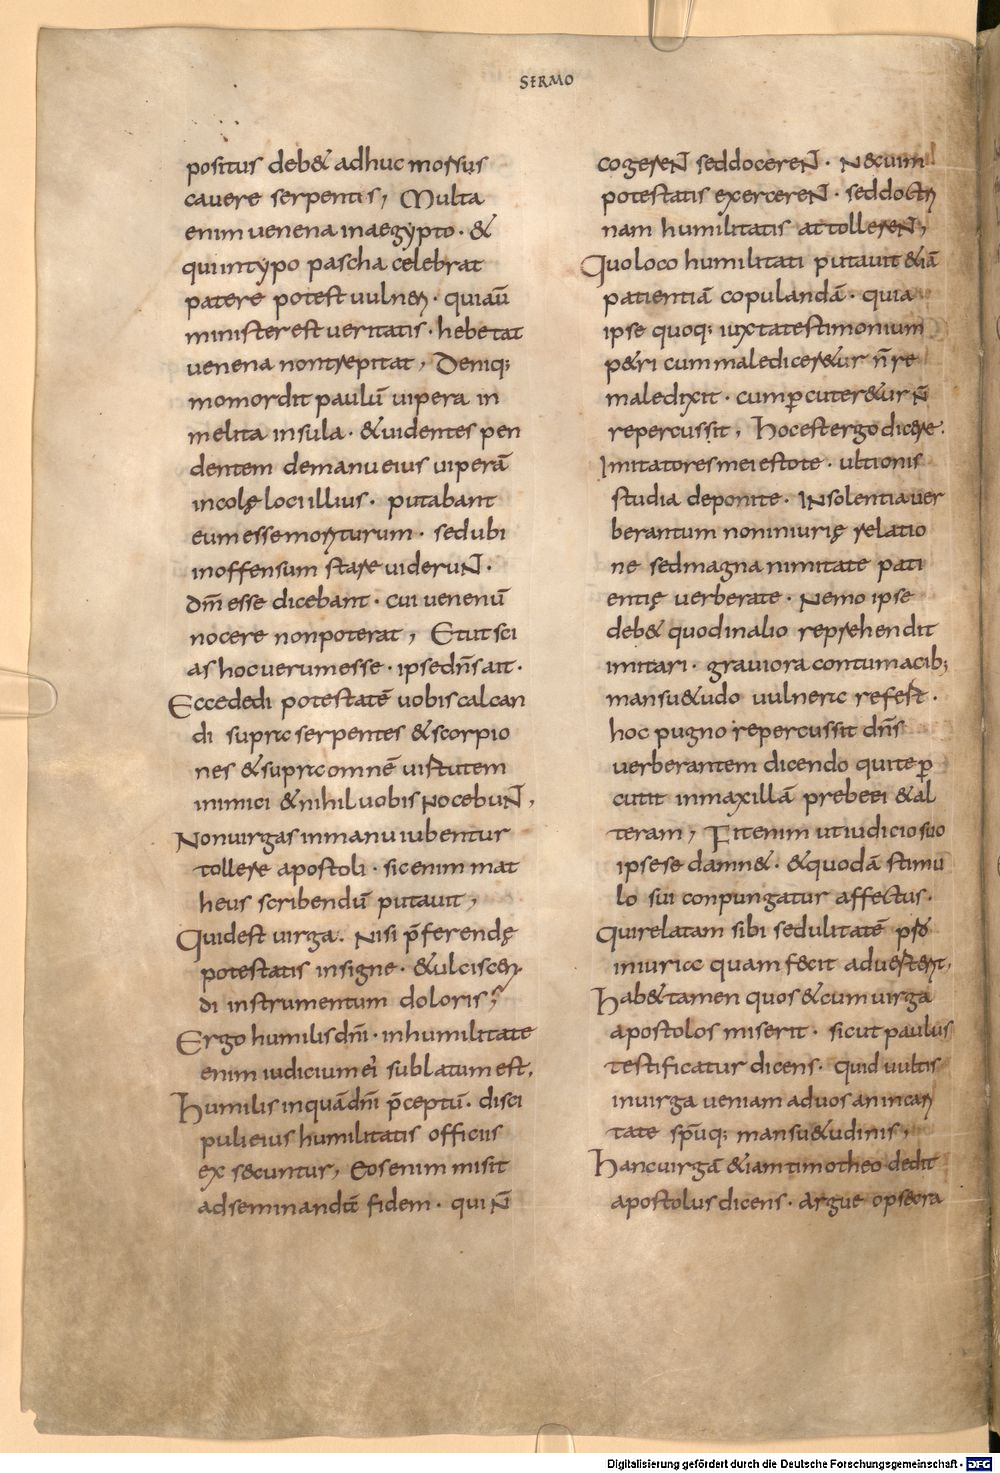 SERMO
positus deb& adhuc morsus
cauere serpentis, Multa
enim uenena inaegypto · &
quiintypo pascha celebrat
patere potest uulneri · quiaū
ministerest ueritatis · hebetat
uenena nontrepitat, Deniq;
momordit paulū uipera in
melita insula · &uidentes pen
dentem demanu eius uiperā
incolę loci illius · putabant
eum esse moriturum · sed ubi
inoffensum stare uiderunt ·
dm̄ esse dicebant · cui uenenū
nocere nonpoterat, Etut sci
as hoc uerum esse · ipse dn̄s ait ·
Ecce dedi potestatē uobis calcan
di supra serpentes &scorpio
nes &supra omnē uirtutem
inimici &nihil uobis nocebunt,
Nonuirgas inmanu iubentur
tollere apostoli · sicenim mat
heus scribendū putauit,
Quidest uirga. Nisi p̄ferendę
potestatis insigne · &ulciscen
di instrumentum doloris;
Ergo humilis dn̄i · inhumilitate
enim iudicium ei sublatum est,
Humilis inquā dn̄i p̄ceptū · disci
puli eius humilitatis officiis
ex secuntur, Eos enim misit
adseminandā fidem · qui n̄
cogerent sed docerent · Necuim
potestatis exercerent · sed doctri
nam humilitatis attollerent,
Quo loco humilitati putauit &iā
patientiā copulandā · quia
ipse quoq; iuxta testimonium
p&ri cum maledicer&ur n̄ re
maledixit · cum p̄cuter&ur n̄
repercussit, Hoc est ergo dicere.
Imitatores mei estote · ultionis
studia deponite · Insolentia uer
berantum non iniurię relatio
ne sed magnanimitate pati
entię uerberate · Nemo ipse
deb& quod inalio reprehendit
imitari · grauiora contumacib;
mansu&udo uulnera refert ·
hoc pugno repercussit dn̄s
uerberantem dicendo quite p̄
cutit inmaxillā prebeei &al
teram, Fit enim ut iudicio suo
ipse se damn& · &quodā stimu
lo sui conpungatur affectus ·
Qui relatam sibi sedulitatē pro
iniuria quam fecit aduerterit,
Hab&tamen quos &cum uirga
apostolos miserit · sicut paulus
testificatur dicens · quid uultis
inuirga ueniam aduos an incari
tate spūq; mansu&udinis,
Hanc uirgā &iam timotheo dedit
apostolus dicens · argue opsecra
Digitalisierung gefördert durch die Deutsche Forschungsgemeinschaft - DFG